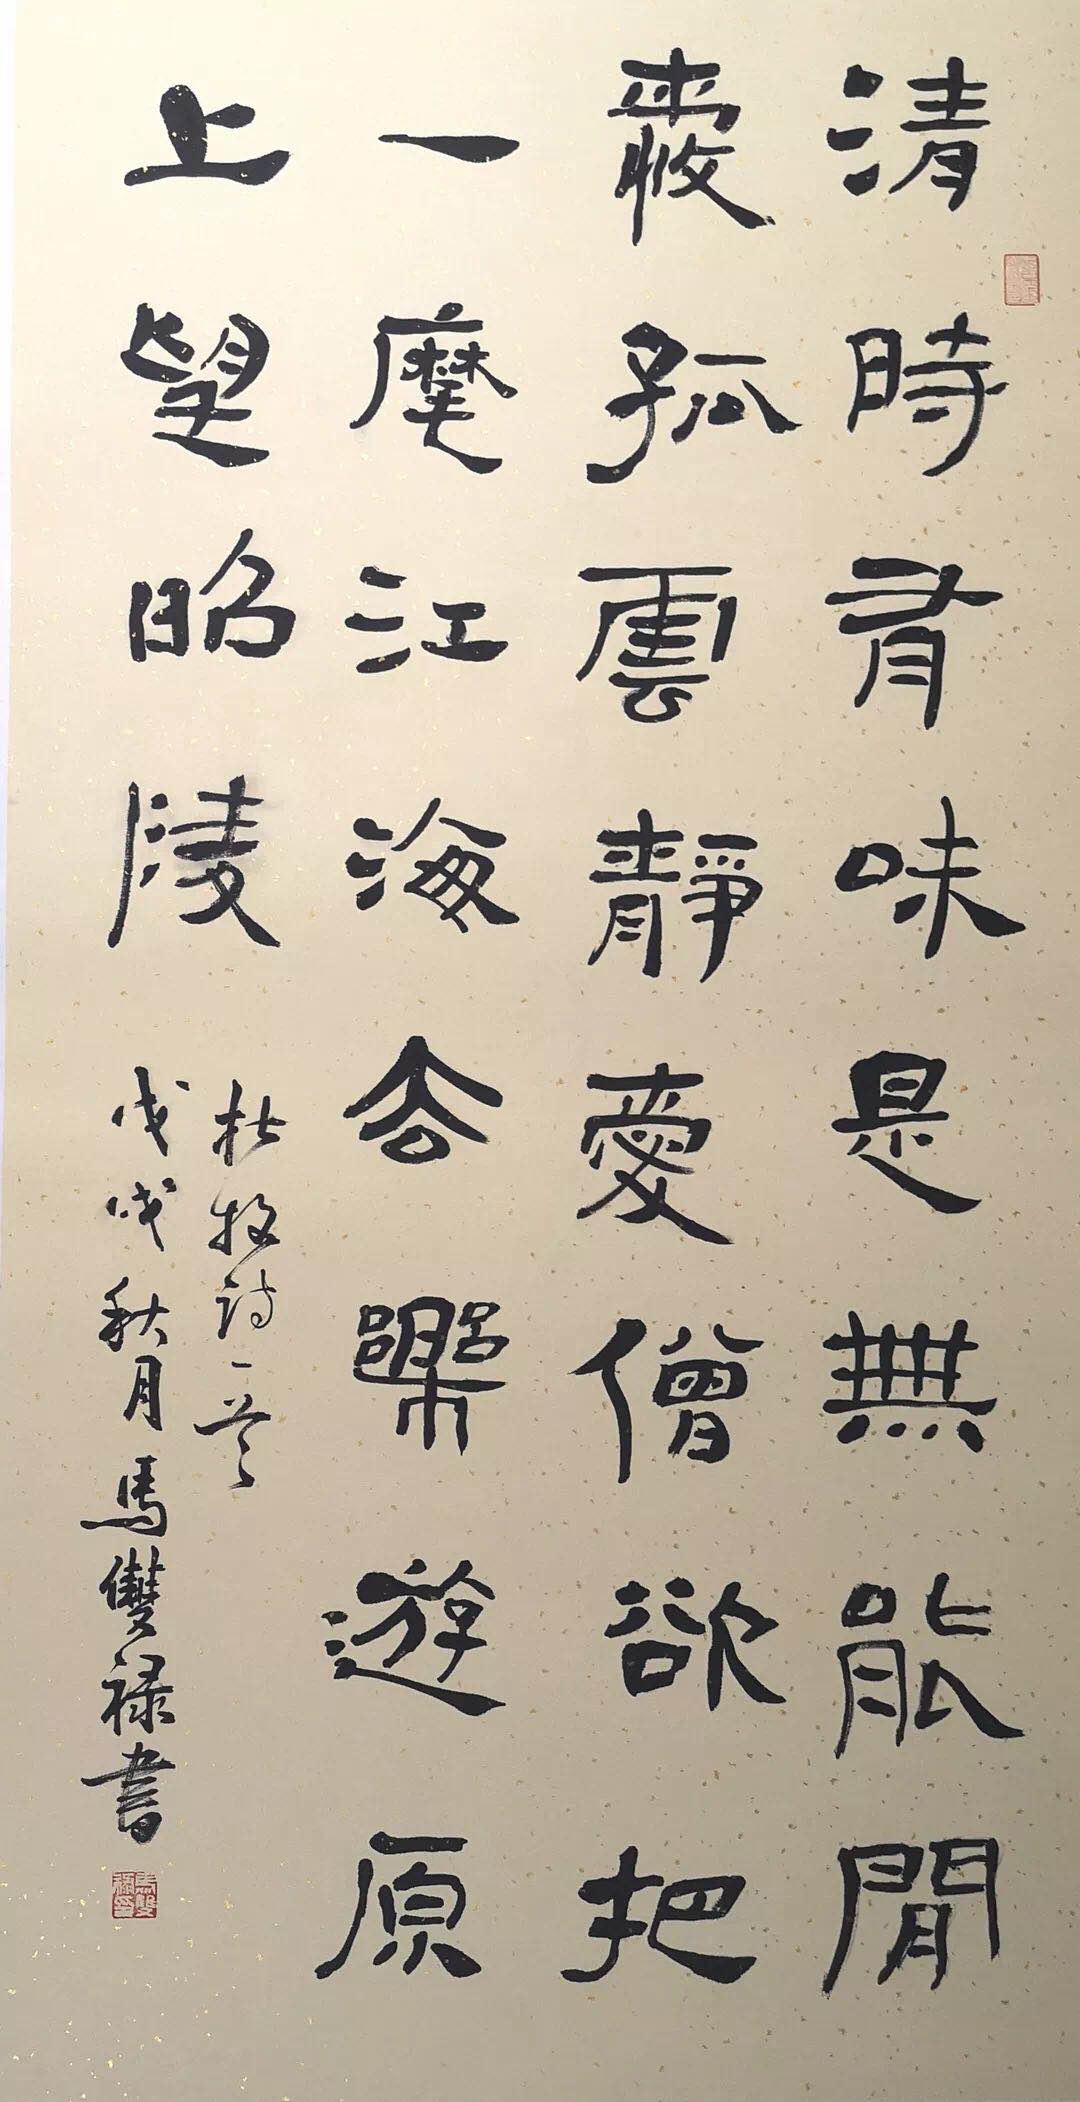 清時有味是無能閒
愛孤雲靜愛僧欲把
一麾江海去樂遊原
上望昭陵
杜牧詩一首
戊戌秋月馬雙禄書
馬雙祿印